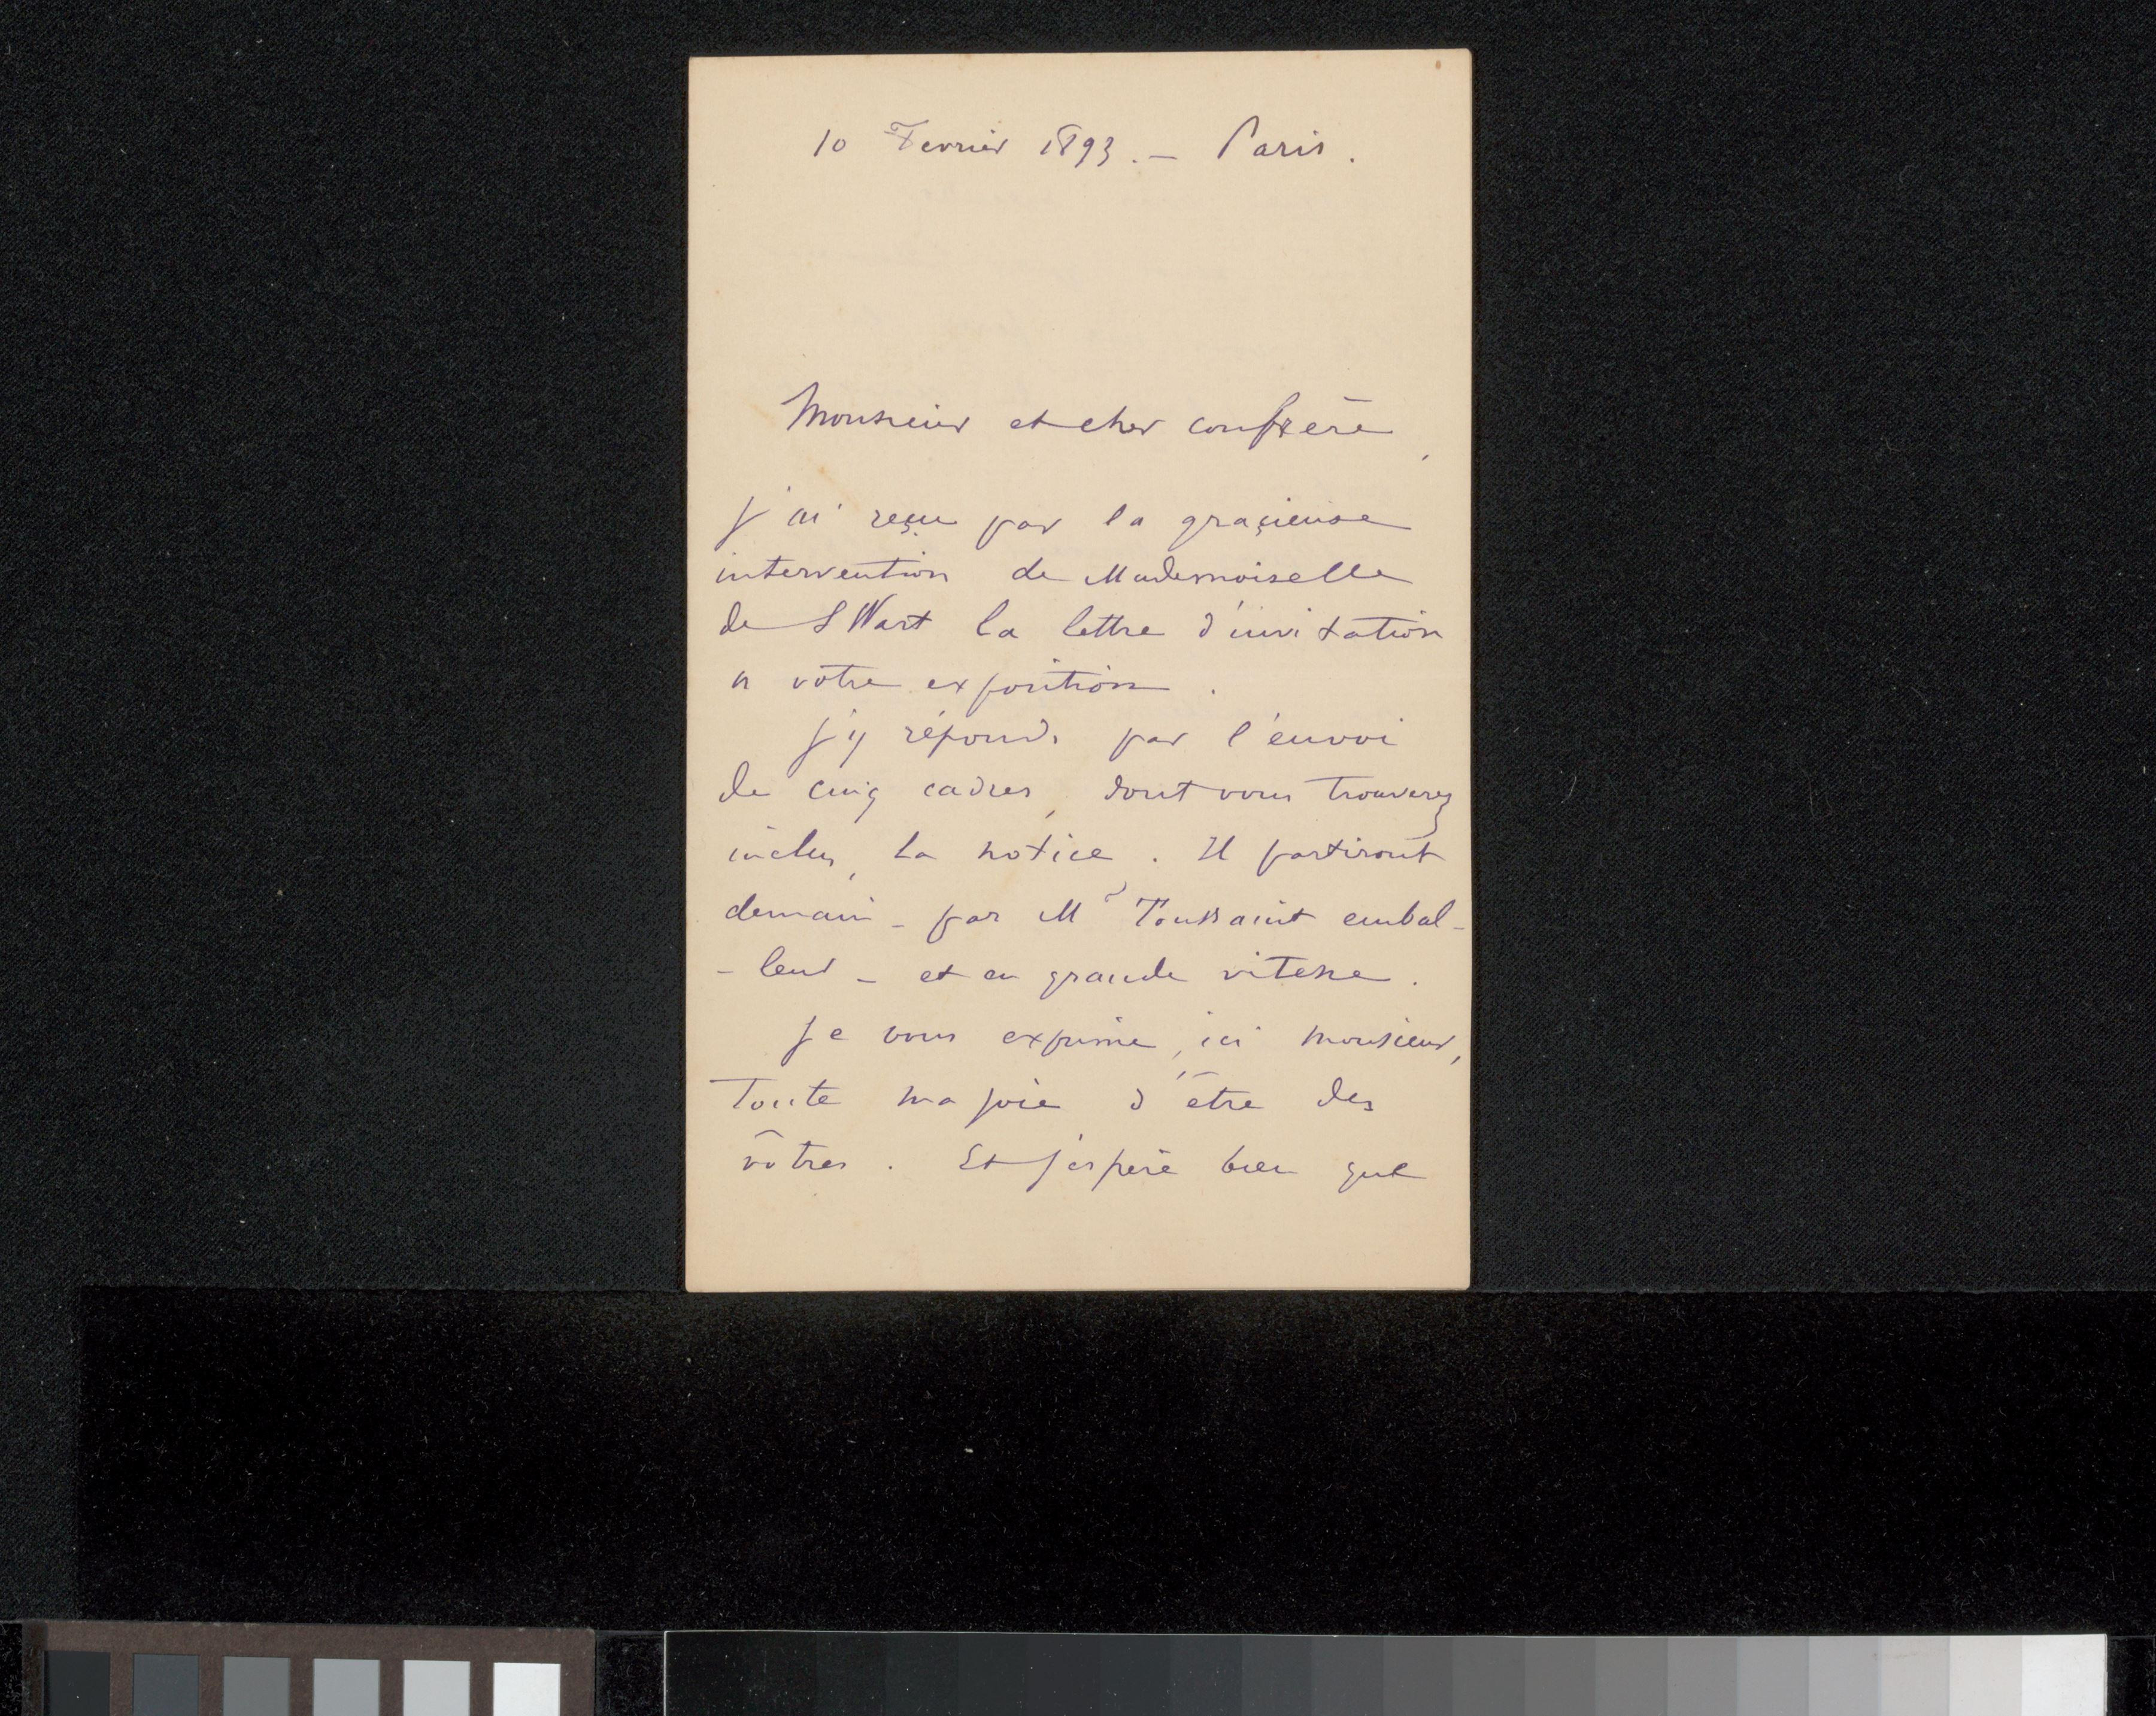 10 Fevrier 1893. – Paris.
Monsieur et cher confrère,
J'ai reçu par la graçieuse
intervention de Mademoiselle
de SWart la lettre d'invitation
a votre exposition.
J'y réponds par l'envoi
de cinq cadres, dont vous trouverez
inclus, la notice. Il partiront
demain – par Mr Toussaint embal-
- leur – et en grande vitesse.
Je vous exprime, ici monsieur,
Toute ma joie d'être des
vôtres. Et j'espère bien que